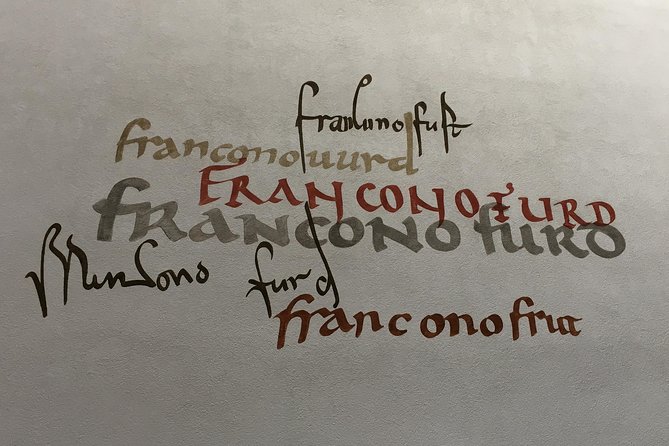 francono furt
franconouurd
FRANCONOFURD
francono furd
francono furd
francono frut